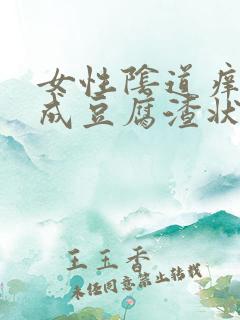 女性陰道痒
成豆腐渣状
王玉香
未经同意禁止转载